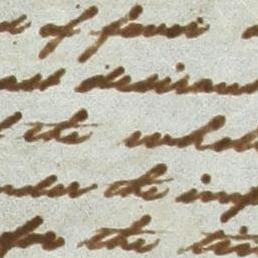 of favor
desirous
the whole
under the imp
for the tim